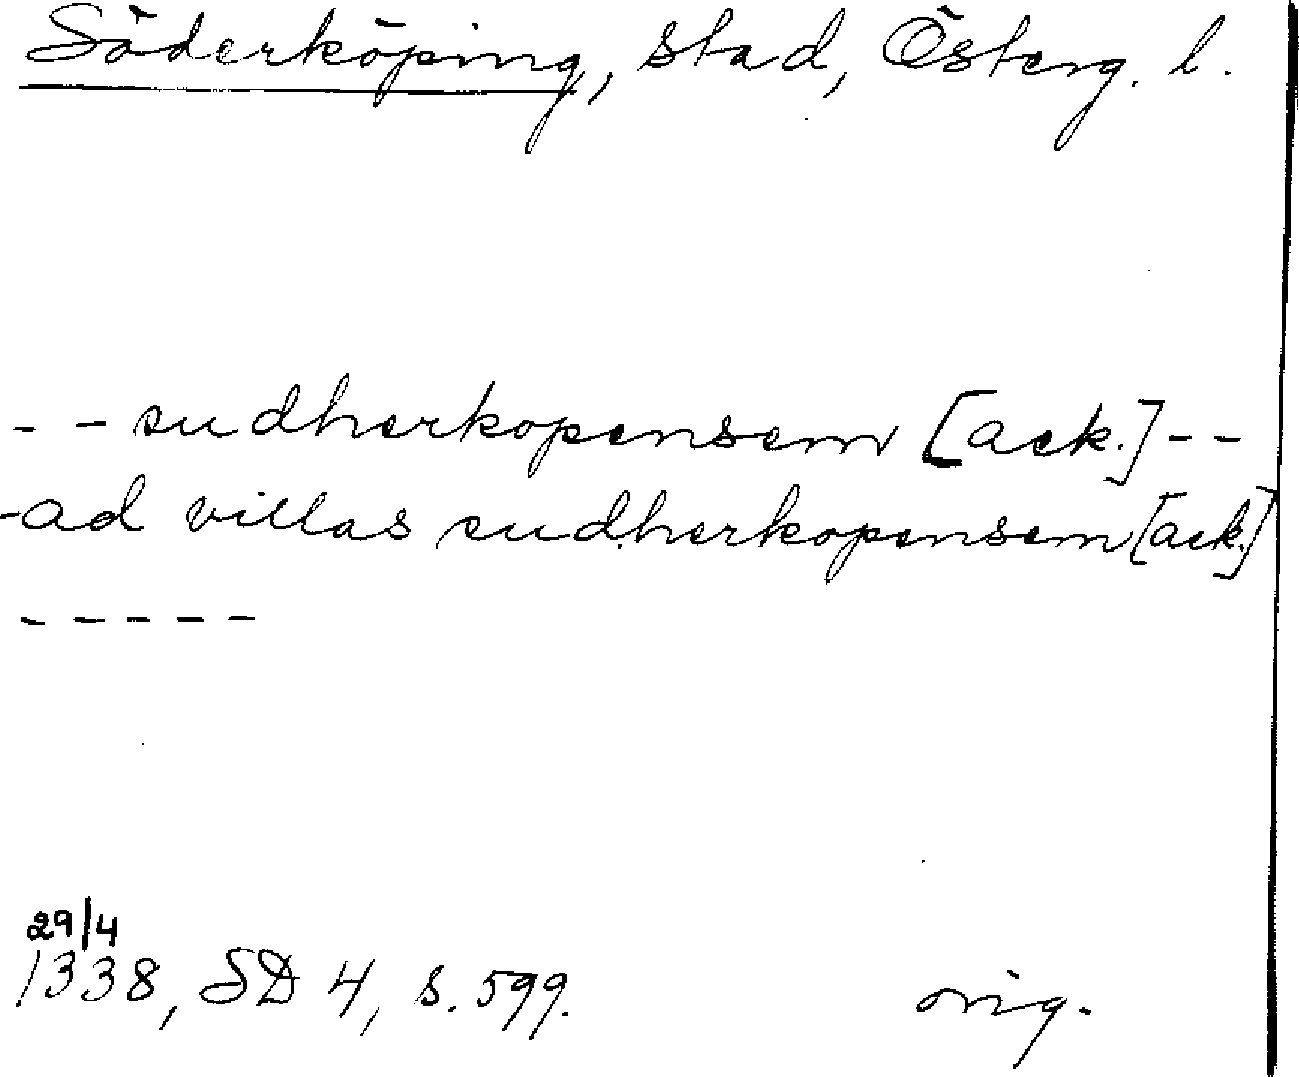 Söderköping, stad, Österg. l.
- - sudherkopensem [ack.] - -
- ad villas sudherkopensem [ack.]
- - - - -
29/4
1338, SD 4, s. 599.
orig.